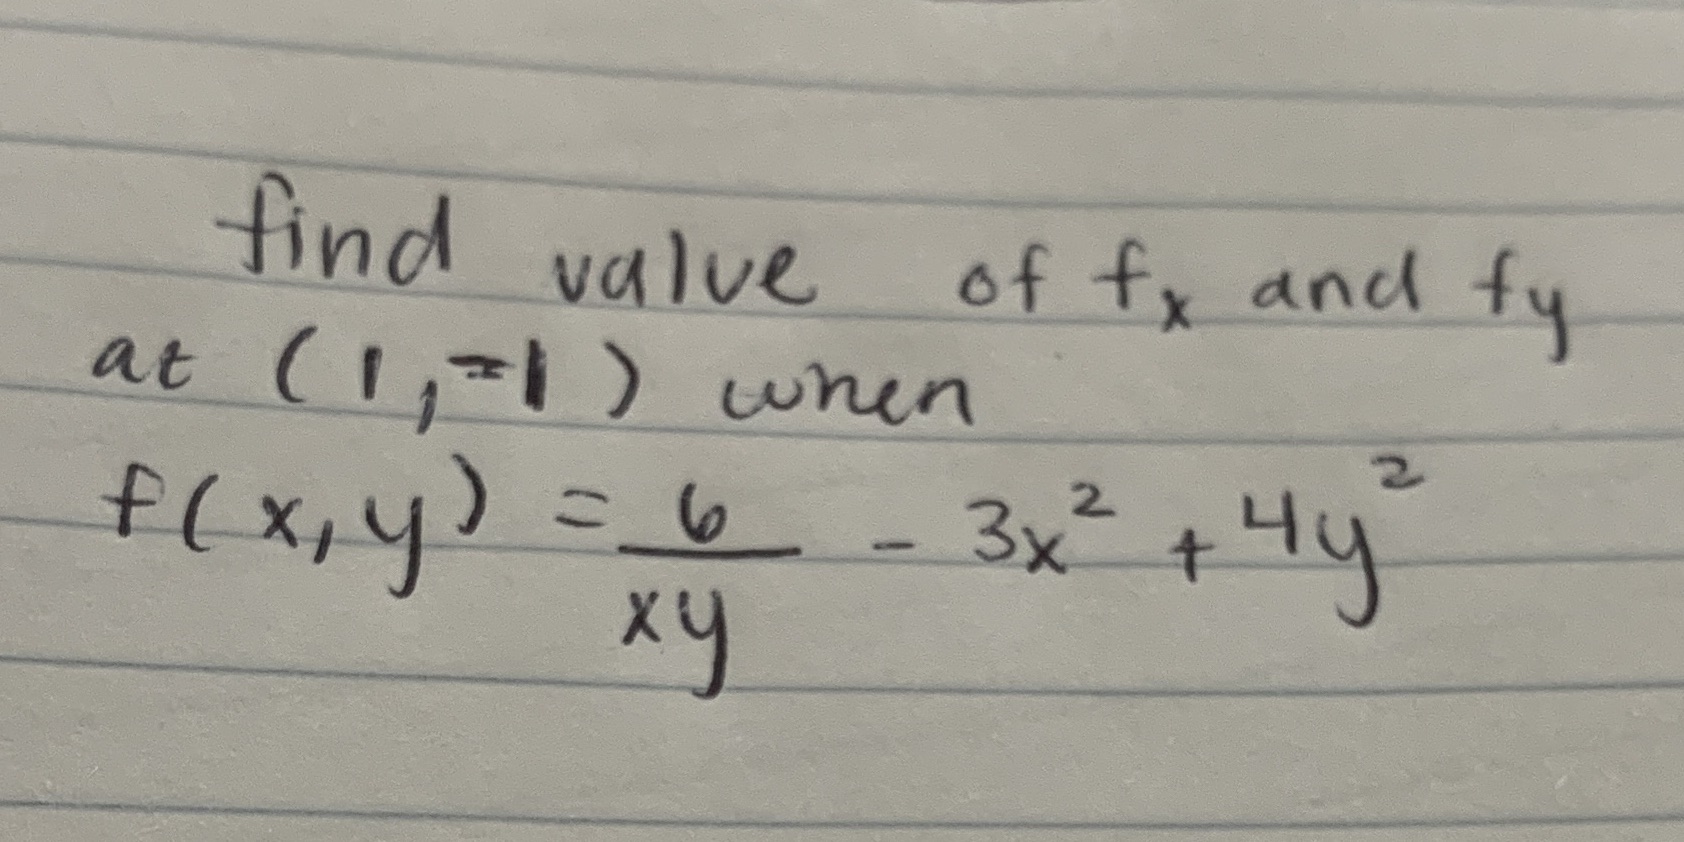 find value of fₓ and fy
at (1,-1) when
f(x,y) = 6/xy - 3x² + 4y²